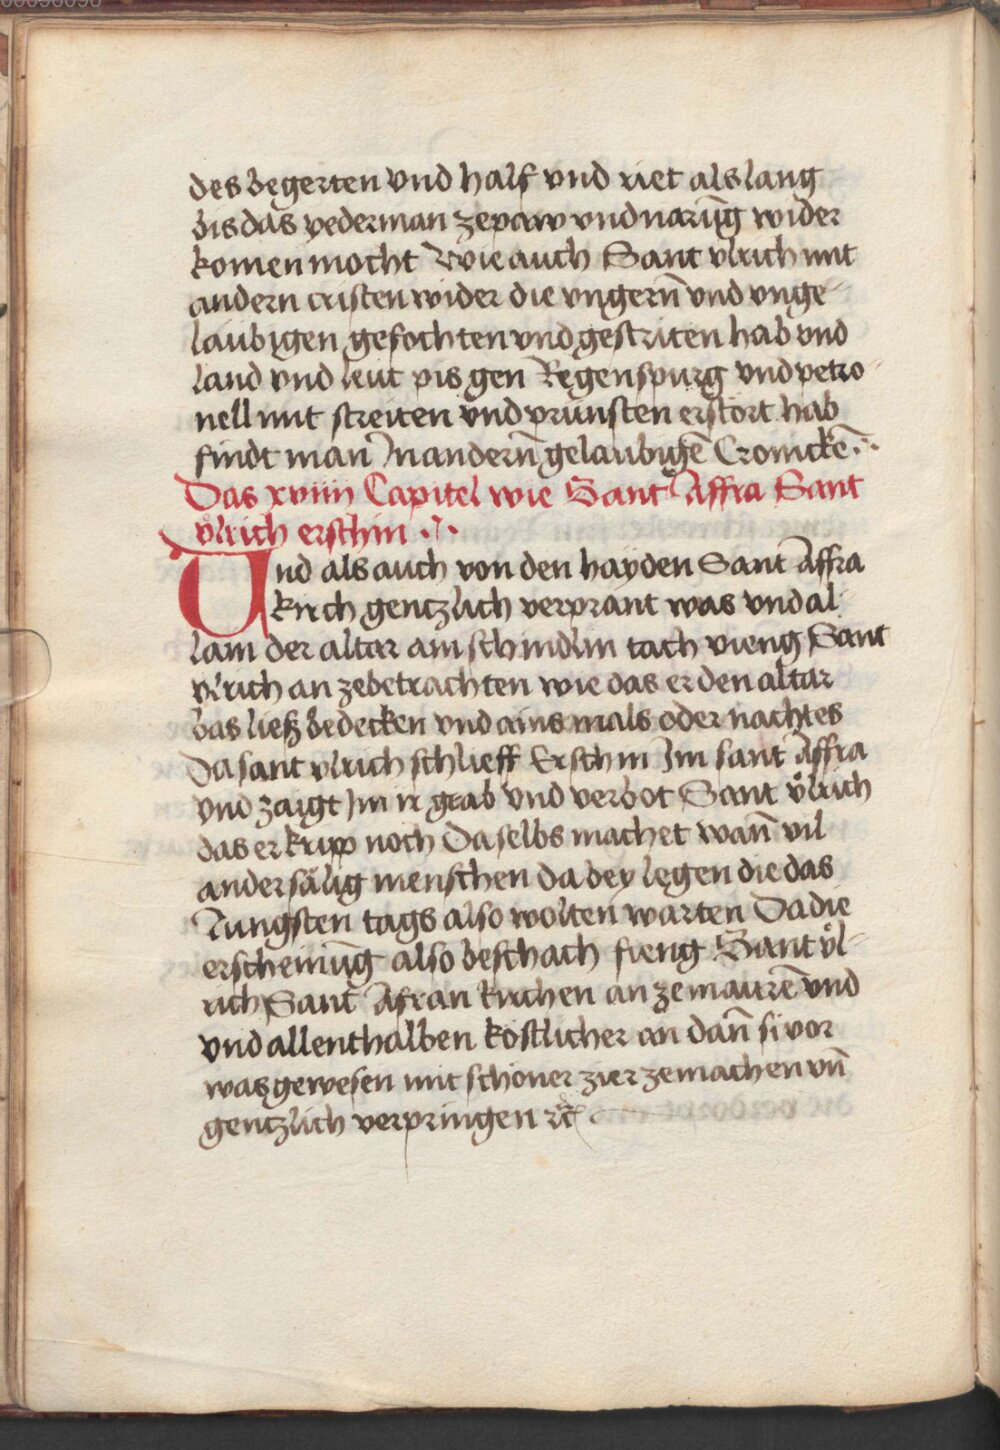 des begerten vnd half vnd riet als lang
bis das yederman zepaw vnd narūg wider
komen mocht Wie auch Sant vlrich mit
andern cristen wider die vngern̄ vnd vnge-
laubigen gefochten vnd gestriten hab vnd
land vnd leut pis gen Regenspurg vnd petro-
nell mit streiten vnd prunsten erstört hab
findt man Jn andern̄ gelaubigē Cronickē
Das xviiij Capitel wie Sant Affra Sant
vͦlrich erschin
Vnd als auch von den hayden Sant Affra
kirch gentzlich verprant was vnd al-
lain der altar am schindlin tach vieng Sant
vlrich an zebetrachten wie das er den altar
bas ließ bedecken vnd ains mals oder nachtes
Da sant vlrich schlieff Erschin Jm sant Affra
vnd zaigt Jm ir grab vnd verbot Sant vͦlrich
das er kein noch Daselbs machet wan̄ vil
ander sälig menschen da bey legen die das
Jungsten tags also wolten warten Da die
erscheinūg also beschach fieng Sant vͦl-
rich Sant Afran kirchen an ze maurē vnd
vnd allenthalben köstlicher an dan̄ si vor
was gewesen mit schöner zier zemachen vn̄
gentzlich verpringen ꝛc̄